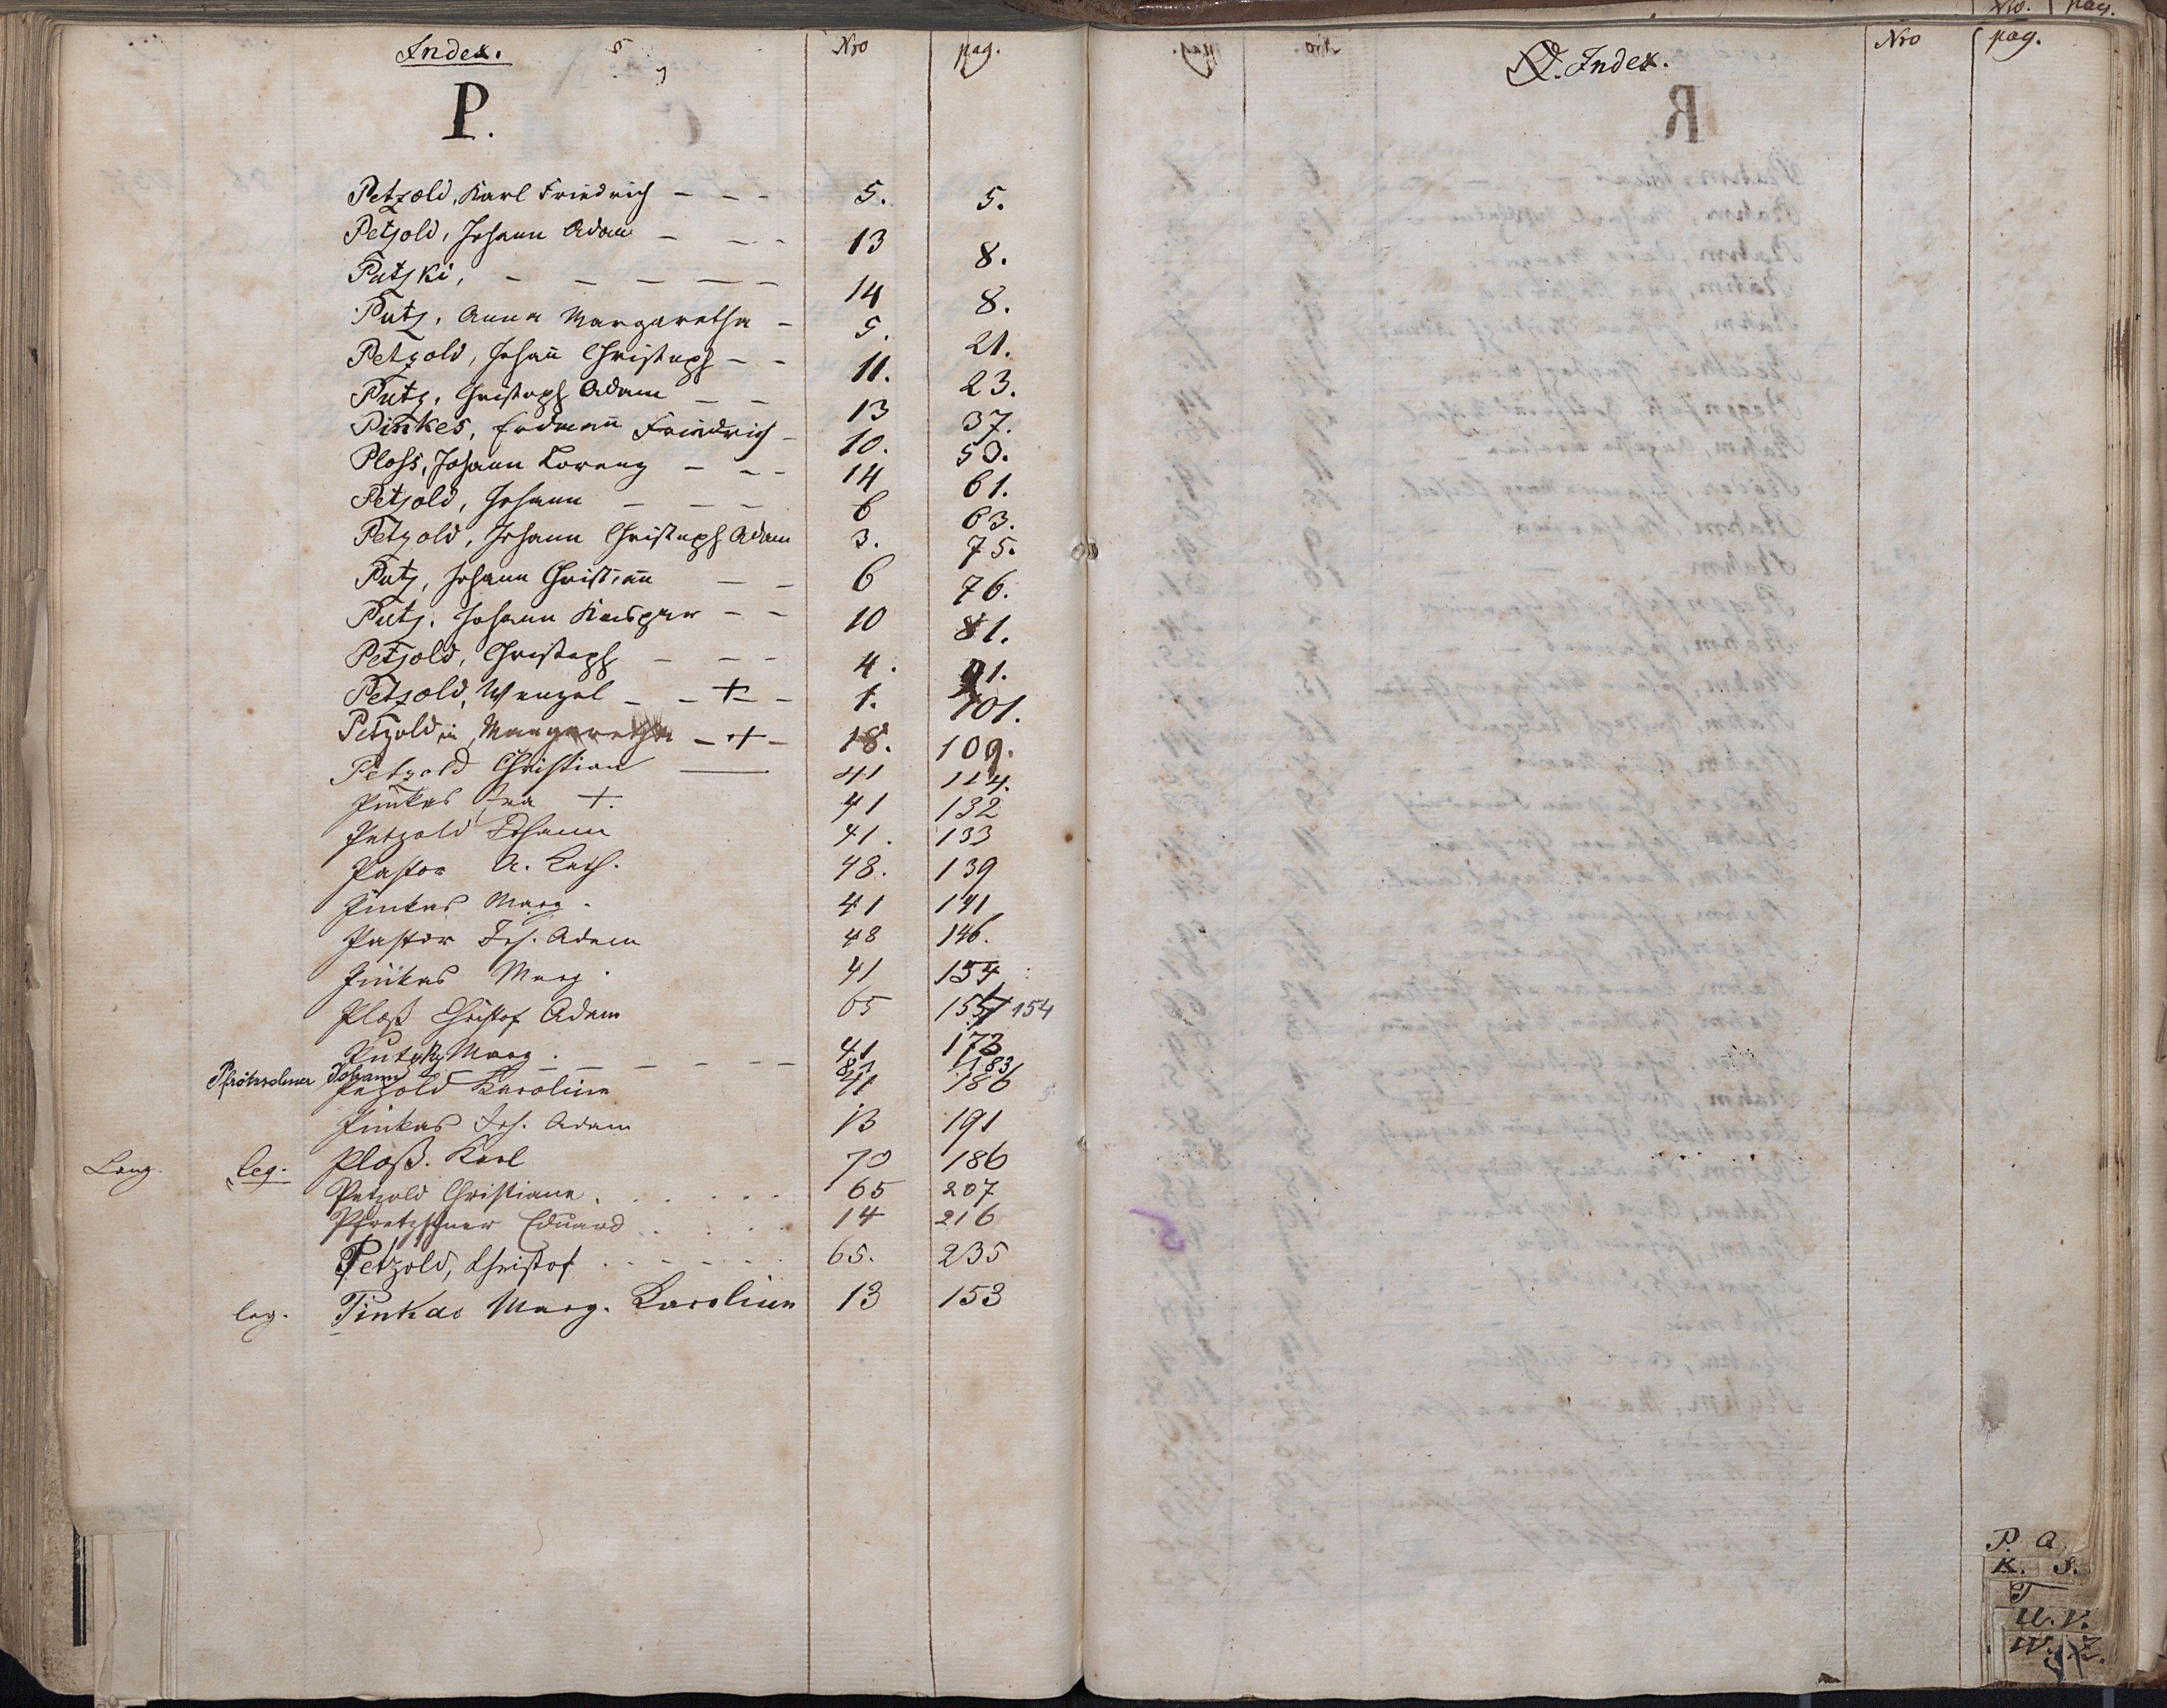 Index.
Nro pag.
P.
Petzold, Karl Friedrich - - - 5. 5.
Petzold, Johann Adam - - - 13 8.
Putzki, - - - - - 14 8.
Putz, Anna Margaretha - 5. 21.
Petzold, Johann Christoph - - 11. 23.
Putz, Christoph Adam - - 13 37.
Pinkes, Erdmann Friedrich - 10. 53.
Ploss, Johann Lorenz - - - 14 61.
Petzold, Johann - - - 6 63.
Petzold, Johann Christoph Adam 3. 75.
Putz, Johann Christian - - 6 76.
Putz, Johann Kaspar - - 10 81.
Petzold, Christoph - - - 4. 91.
Petzold, Wenzel - - + - 1. 101.
Petzoldin, Margaretha - + - 18. 109.
Petzold Christian 41 124.
Pinkas Eva +. 41 132
Petzold Johann 41. 133
Pastor A. Kath. 48. 139
Pinkas Marg. 41 141
Pastor Joh. Adam 48 146.
Pinkas Marg. 41 154
Ploß Christof Adam 65 154
Putzky Marg. - - - - 41 173
Pfrötzschner Johann 87 183
Petzold Karoline 41 186
Pinkas Joh. Adam 13 191
Lang. leg. Ploß. Karl 70 186
Petzold Christiane . . . . . . 65 207
Pfretzschner Eduard . . . . 14 216
Petzold, Christof . . . . . . 65. 235
leg. Pinkas Marg. Karoline 13 153
Q. Index.
Nro pag.
P. Q.
K. S.
T
U. V.
W. Z.